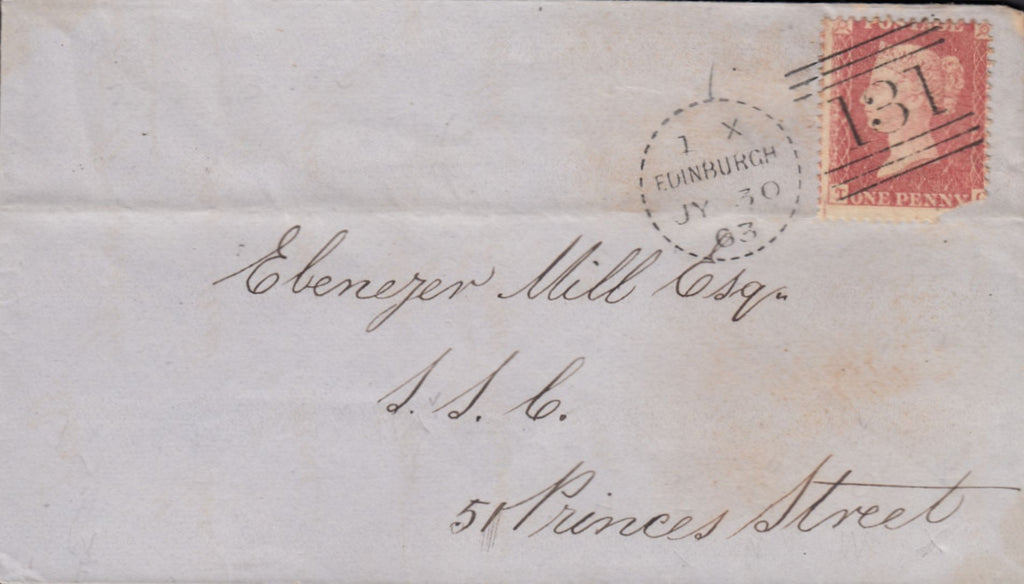 POSTAGE
131
ONE PENNY
1 X
EDINBURGH
JY 30
63
Ebenezer Mill Esqr
S. S. C.
51 Princes Street